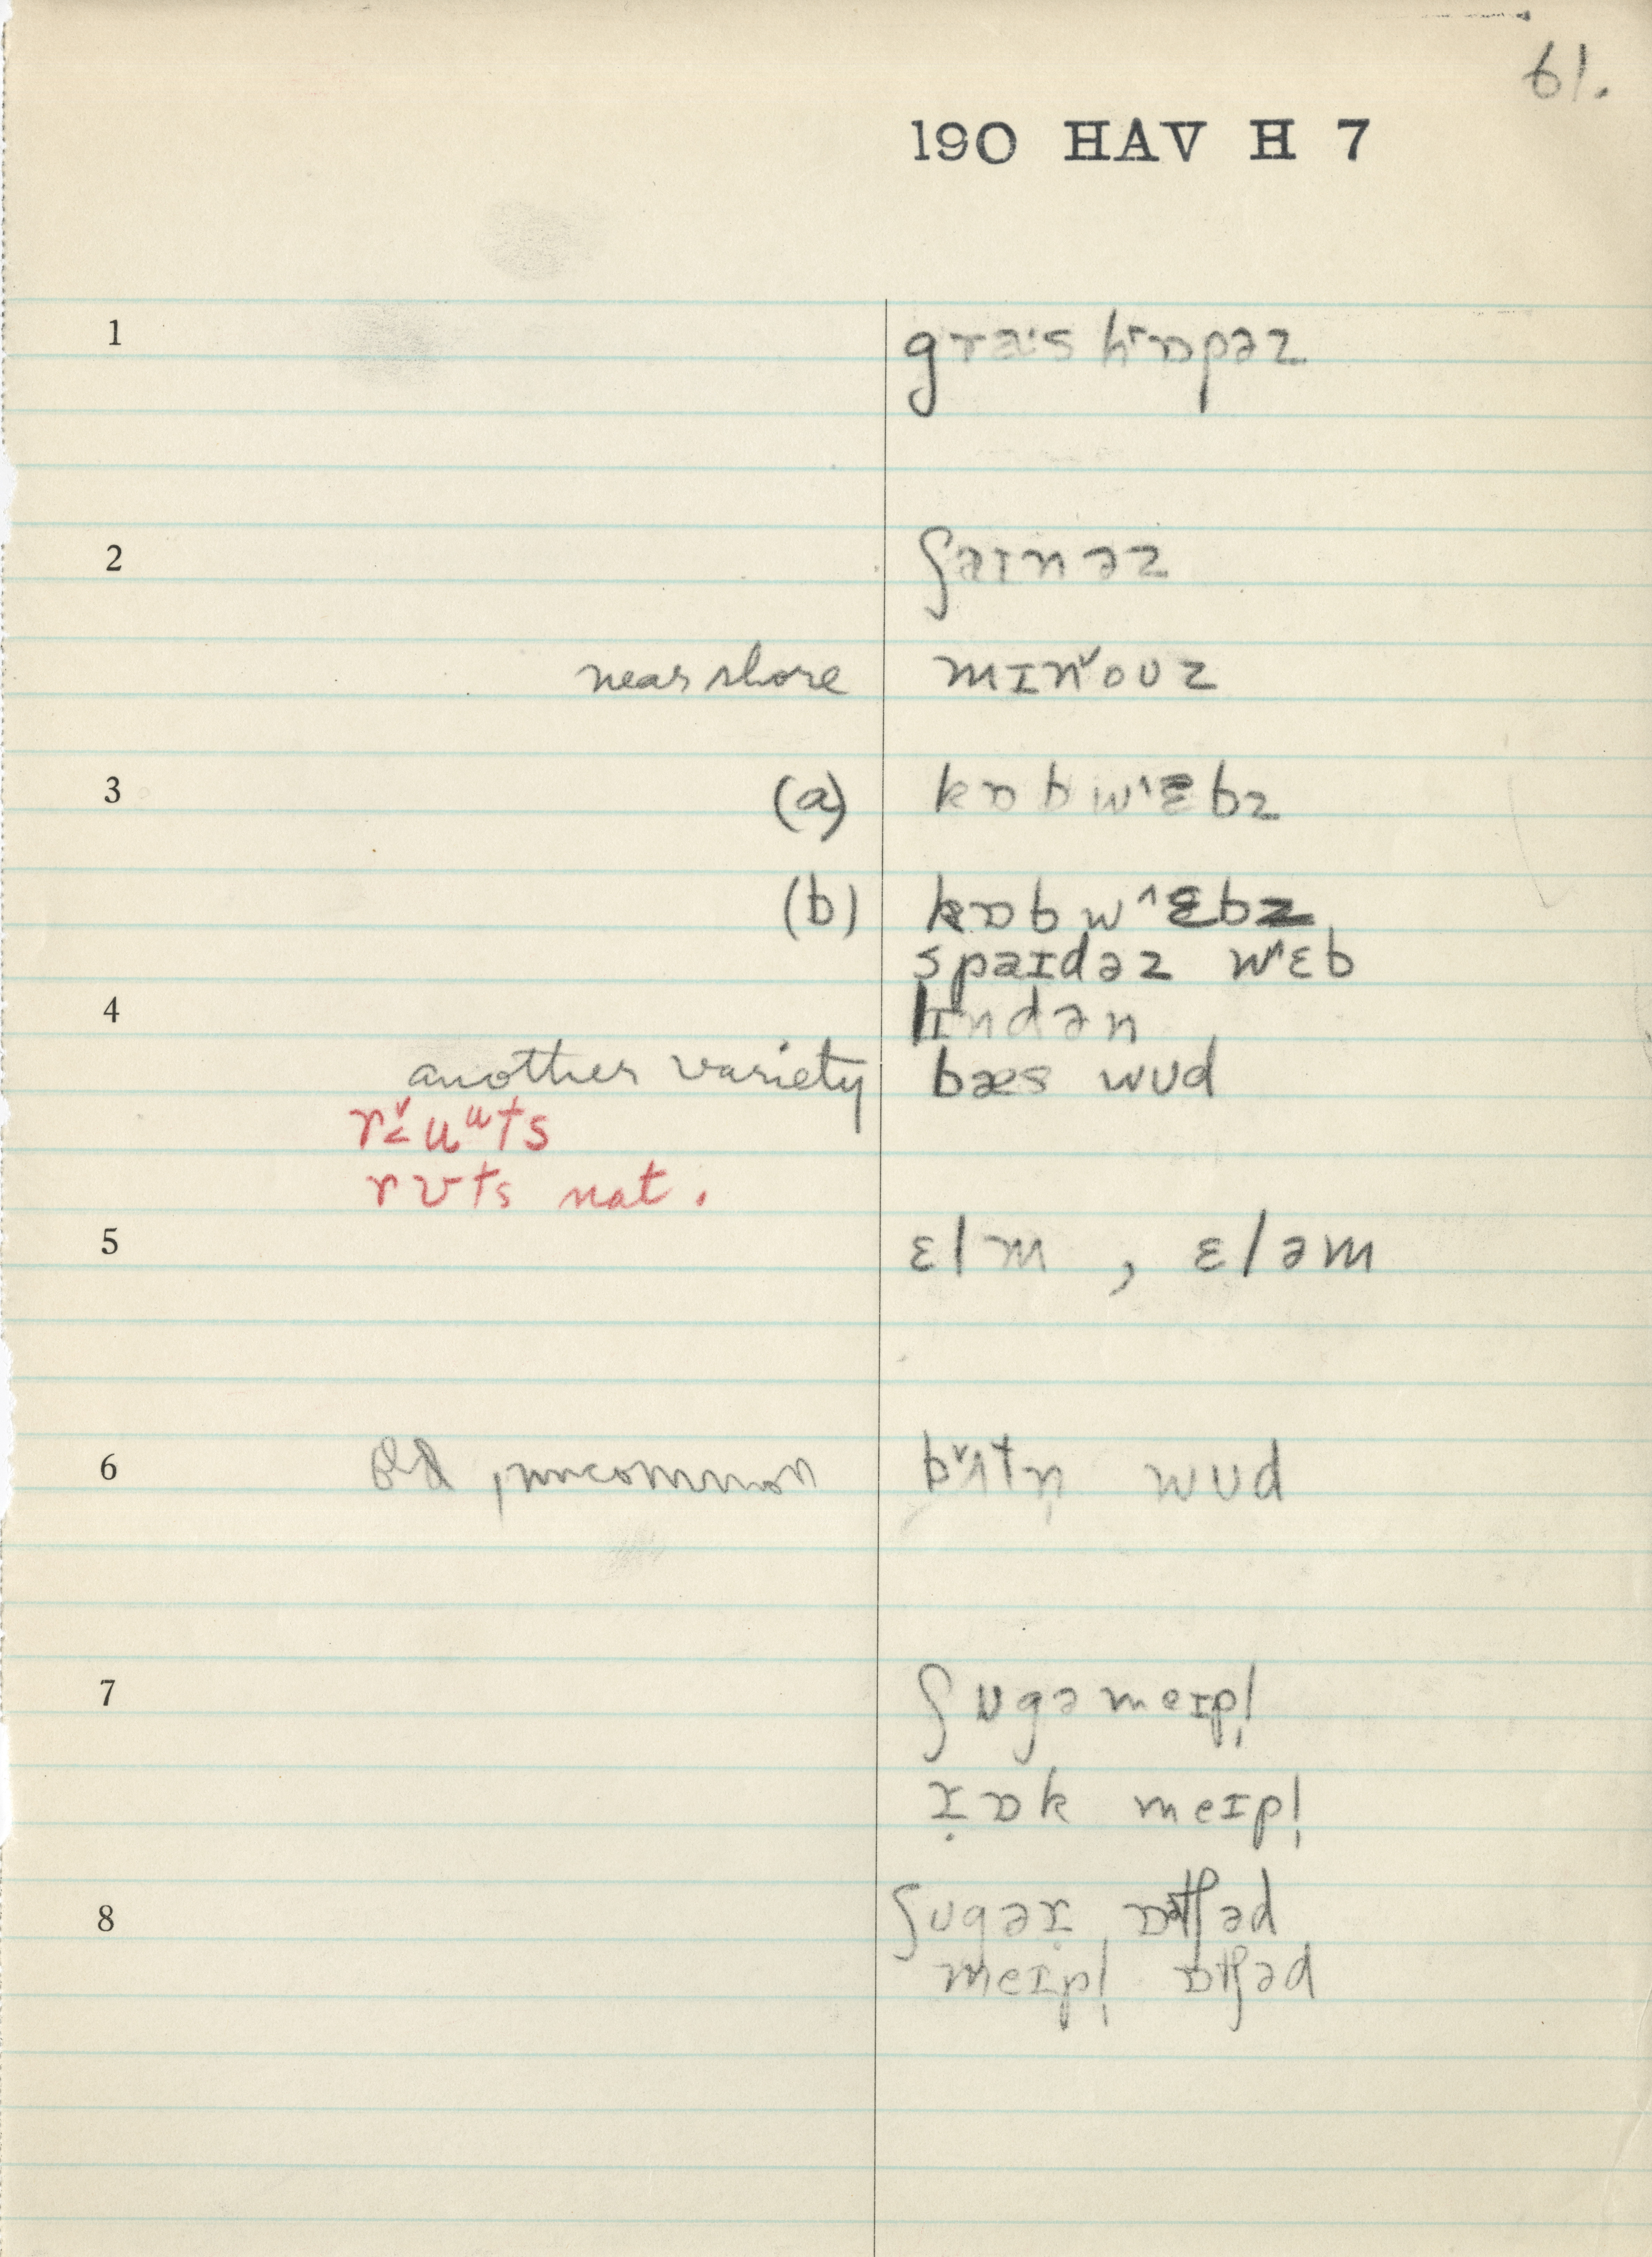 61.
190 HAV H 7
1 græˑs hɒpəz
2 ʃaɪnəz
near shore mɪnˇoʊz
3 (a) kɒb wˆɛbz
(b) kɒb wˆɛbz
spaɪdəz wˆɛb
4 lɪndən
another variety bæs wʊd
rˇ˂uᵘts
rʊts nat.
5 ɛlm , ɛləm
6 old, uncommon bˇʌtn̩ wʊd
7 ʃʊgə meɪpl̩
ɹ̣ɒk meɪpl̩
8 ʃʊgəɹ̣ ɒətʃəd
meɪpl̩ ɒtʃəd